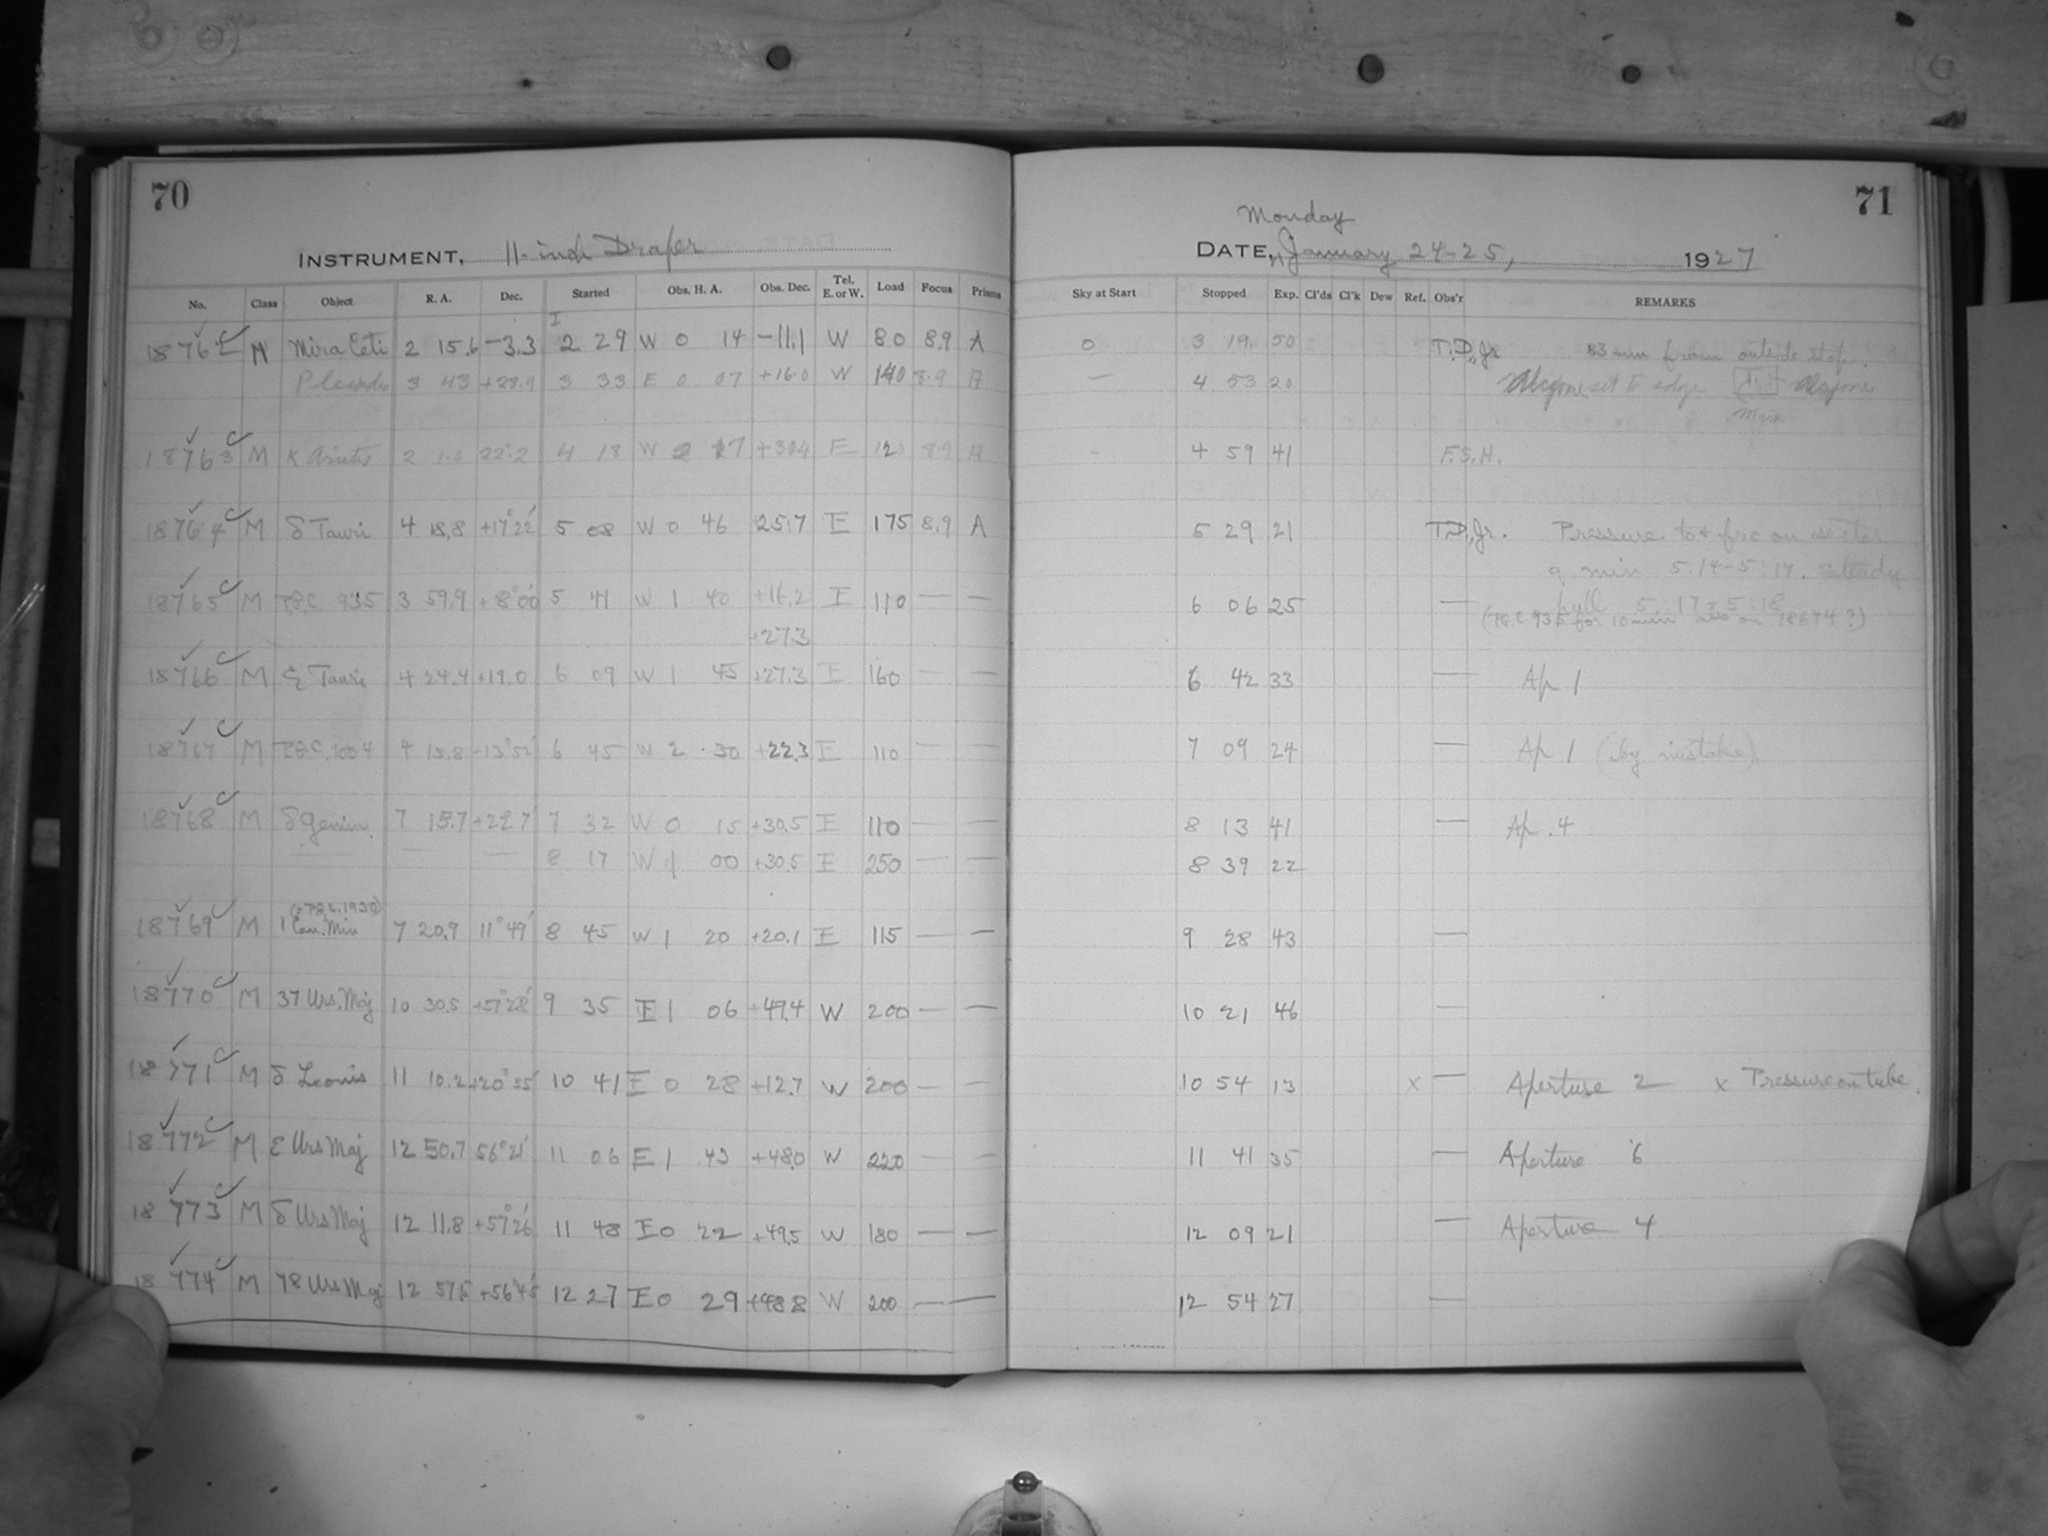 70
INSTRUMENT, 11-inch Draper
No. Class Object R. A. Dec. Started Obs. H. A. Obs. Dec. Tel. E. or W. Load Focus Prisms
18762 M Mira Ceti 2 15.6 -3.3 2 29 W 0 14 -11.1 W 80 8.9 A
Pleiades 3 43 +23.9 3 33 E 0 07 +16.0 W 140 8.9 A
18763 M Arietis 2 1.0 22°.2 4 18 W 2 17 E 8.9 A
18764 M δ Tauri 4 18.8 +17°22' 5 08 W 0 46 25.7 E 175 8.9 A
18765 M 935 3 59.9 +8°00' 5 41 W 1 40 +16.2 E 110 — —
+27.3
18766 M ε Tauri 4 24.4 +19.0 6 09 W 1 45 +27.3 E 160 — —
18767 M 1004 4 15.8 6 45 W 2 30 +22.3 E 110 — —
18768 M δ Gemin. 7 15.7 +22.7 7 32 W 0 15 +30.5 E 110 — —
— — — 8 17 W 1 00 +30.5 E 250 — —
18769 M 1 Can. Min 7 20.9 11°49' 8 45 W 1 20 +20.1 E 115 — —
18770 M 37 Urs. Maj 10 30.5 +57°28' 9 35 E 1 06 +49.4 W 200 — —
18771 M δ Leonis 11 10.2 +20°55' 10 41 E 0 28 +12.7 W 200 — —
18772 M ε Urs Maj 12 50.7 56°21' 11 06 E 1 43 +48.0 W 220 — —
18773 M δ Urs Maj 12 11.8 +57°26' 11 48 E 0 22 +49.5 W 180 — —
18774 M 78 Urs Maj 12 57.5 +56°45' 12 27 E 0 29 +48.8 W 200 — —
71
Monday
DATE, January 24-25, 1927
Sky at Start Stopped Exp. Cl'ds Cl'k Dew Ref. Obs'r REMARKS
0 3 19 50 T.D., Jr 83 mm from outside stop.
— 4 53 20 set to edge
- 4 59 41 F.S.H.
5 29 21 T.D., Jr. Pressure on sector
9 min 5:14-5:17. Steady
pull 5:17-5:18
6 06 25 — 935 for 10 min also on 18674?)
6 42 33 — Ap 1
7 09 24 — Ap 1 (by mistake).
8 13 41 — Ap. 4
8 39 22
9 28 43 —
10 21 46 —
10 54 13 x — Aperture 2 x Pressure on tube.
11 41 35 — Aperture 6
12 09 21 — Aperture 4
12 54 27 —